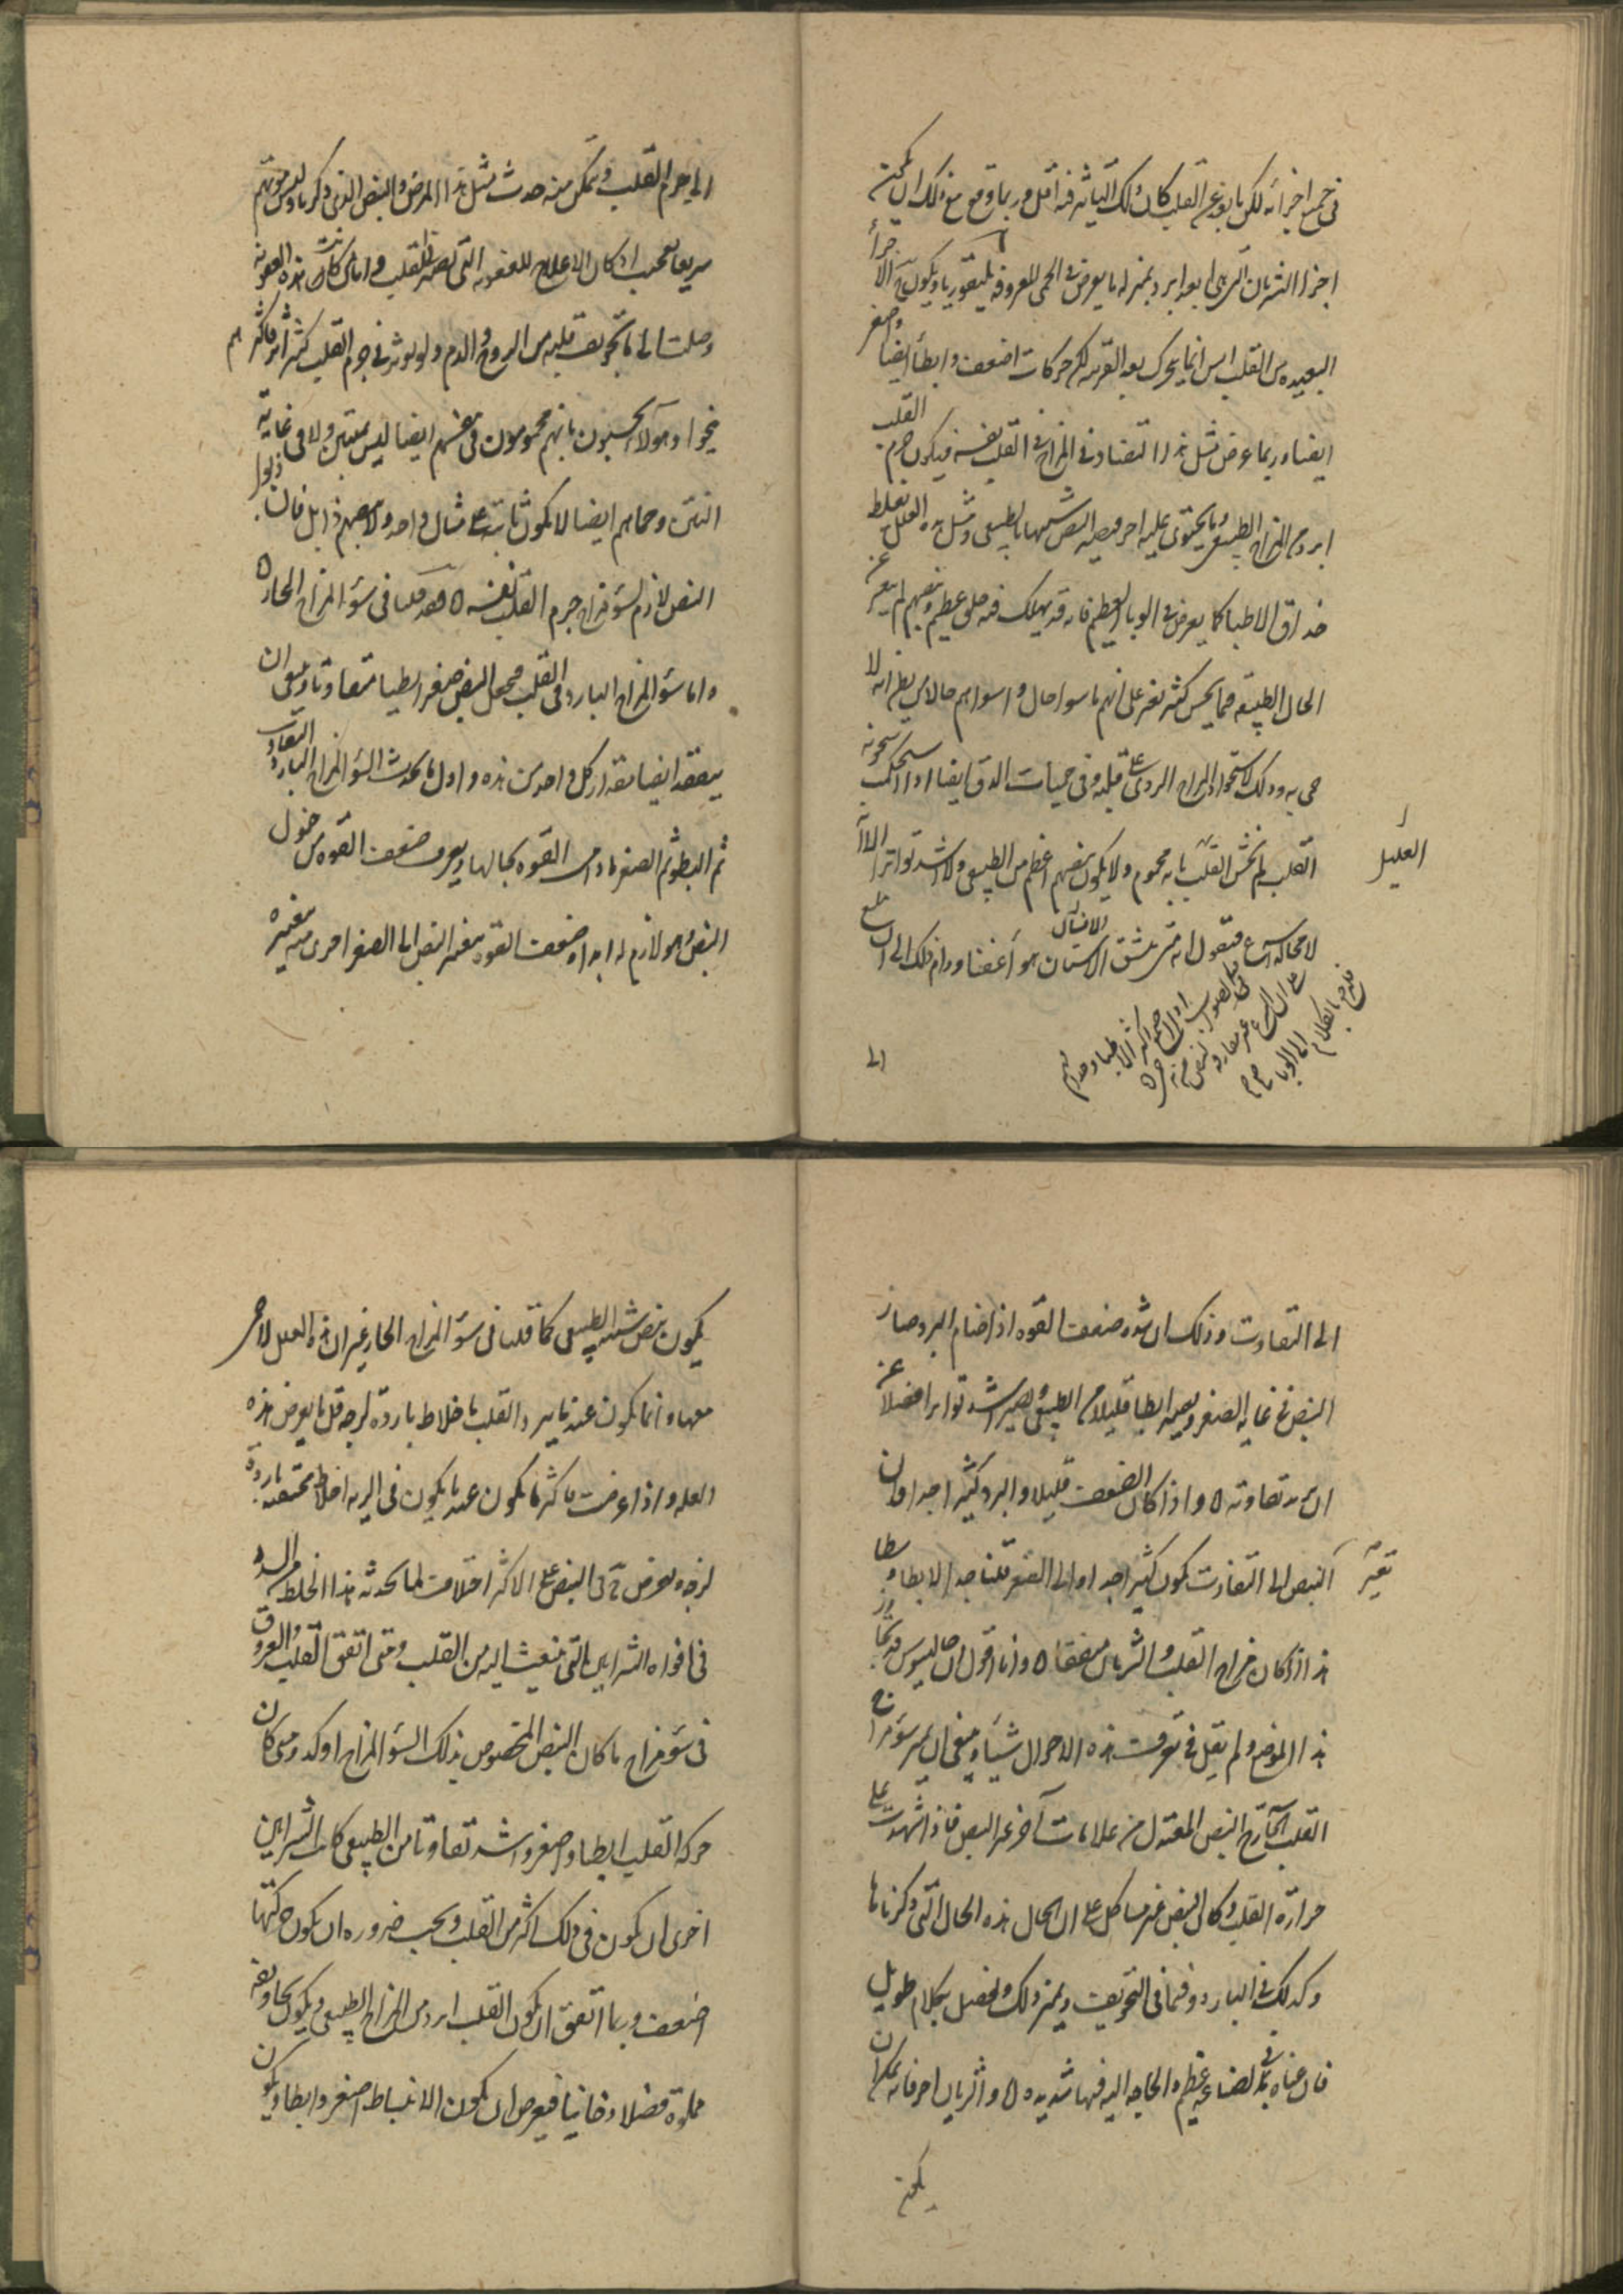 في جميع اجزائه لكن ما بعد عن القلب كان ذلك التاثير فيه اقل وربما وقع مع ذلك ان يكون
اجزا الشريان التي هي ابعد ابرد بمنزلة ما يعرض في الحمى المعروفة بليفوريا ويكون الاجزأ
البعيده من القلب ليس انما يتحرك بعد القريبه لكن حركات اضعف وابطأ ايضا واصغر
ايضا وربما عرض مثل هذا التضاد في المزاج في القلب نفسه فيكون جرم القلب
ابرد من المزاج الطبيعي وما يحتوي عليه احر فيصير النبض شبيها بالطبيعي ومثل هذه العلل تغلط
حذاق الاطبا كما يعرض في الوبا العظيم فانه قد يهلك فيه خلق عظيم ونبضهم لم يتغير عن
الحال الطبيعيه فيما يحس كثير تغير على انهم باسوا حال واسواهم حالا من يظن انه لا
حمى به وذلك لاستحواذ المزاج الردي على قلبه وفي حميات الدق ايضا اذا استحكمت سخونة
القلب لم يحس القلب بانه محموم ولا يكون نبضهم اعظم من الطبيعي ولا اشد تواترا الا انه
العليل
لا محاله اسرع فنقول انه متى يستنشق الانسان هوأ عفنا ودام ذلك الى ان بلغ
الانسان
الى
الى جرم القلب وتمكن منه حدث مثل هذا المرض والنبض الذي ذكرنا وليس موتهم
سريعا بعجب اذ كان الاعلاج للعفونه التي تصير للقلب واما ان كانت هذه العفونه
وصلت الى ما في تجويف قلبه من الروح والدم ولم يوثر في جرم القلب كثير اثر فاكثرهم
نجوا وهولآ يحسون بانهم محمومون في نفسهم ايضا ليس بمنتن ولا في غاية
النتن وحماهم ايضا لا تكون ثابته على مثال واحد ولا نبضهم ذابل فان ذبول
النبض لازم لسؤ مزاج جرم القلب نفسه ٥ فقد قلنا في سؤ المزاج الحار ٥
واما سؤ المزاج البارد في القلب فيجعل النبض صغيرا بطيا متفاوتا وينبغى ان
يتفقد ايضا مقدار كل واحد من هذه واول ما يحدث السؤ المزاج البارد التفاوت
ثم البطو ثم الصغر ما دامت القوه بحالها ويعرف ضعف القوه من خمول
النبض وهو لازم له ابدا وضعف القوه يغير النبض الى الصغر احرى منه بتغييره
الى التفاوت وذلك ان شده ضعف القوه اذا ضام البرد صار
النبض في غايه الصغر ويصير ابطا قليلا من الطبيعي ويصير اشد تواترا فضلا عن
ان يزيد تفاوته ٥ واذا كان الضعف قليلا والبرد كثير اجدا فان
تغيّر
النبض الى التفاوت يكون كثير اجدا والى الصغر قليلا جدا والابطا وسطا
هذا اذا كان مزاج القلب والشريان متفقا ٥ وانا اقول ان جالينوس قد تجاوز
هذا الموضع ولم يقل في تعرف هذه الاحوال شيأ وينبغى ان يميز سؤ مزاج
القلب الحار مع النبض المعتدل من علامات آخر غير النبض فاذا شهدت على
حرارة القلب وكان النبض غير مشاكل علم ان الحال هذه الحال التي ذكرناها
وكذلك في البارد وفيما في التجويف ويميز ذلك ويفصل بكلام طويل
فان غناه في هذه الصناعه عظيم والحاجه اليه فيها شديده ٥ والشريان احر فانه يمكن ان
يكون
يكون نبض شبيه بالطبيعي كما قلنا في سؤ المزاج الحار غير ان هذه العلل لا حمى
معها وانما يكون عندما يبرد القلب باخلاط بارده لزجه قل ما يعرض هذه
العله واذا عرضت فاكثر ما يكون عندما يكون في الريه اخلاط محتقنه بارده
لزجه ويعرض في النبض على الاكثر اختلاف لما يحدثه هذا الخلط من السدد
في افواه الشرايين التي ينبعث اليه من القلب ومتى اتفق القلب والعروق
في سؤ مزاج ما كان النبض المخصوص بذلك السؤ المزاج اوكد ومتى كان
حركة القلب ابطا واصغر واشد تفاوتا من الطبيعي كانت الشرايين
احرى ان يكون في ذلك اكثر من القلب ويجب ضروره ان يكون حركتها
اضعف وربما اتفق ان يكون القلب ابرد من المزاج الطبيعي ويكون تجاويفه
مملوة فضلا دخانيا فيعرض ان يكون الانبساط اصغر وابطا ويكون